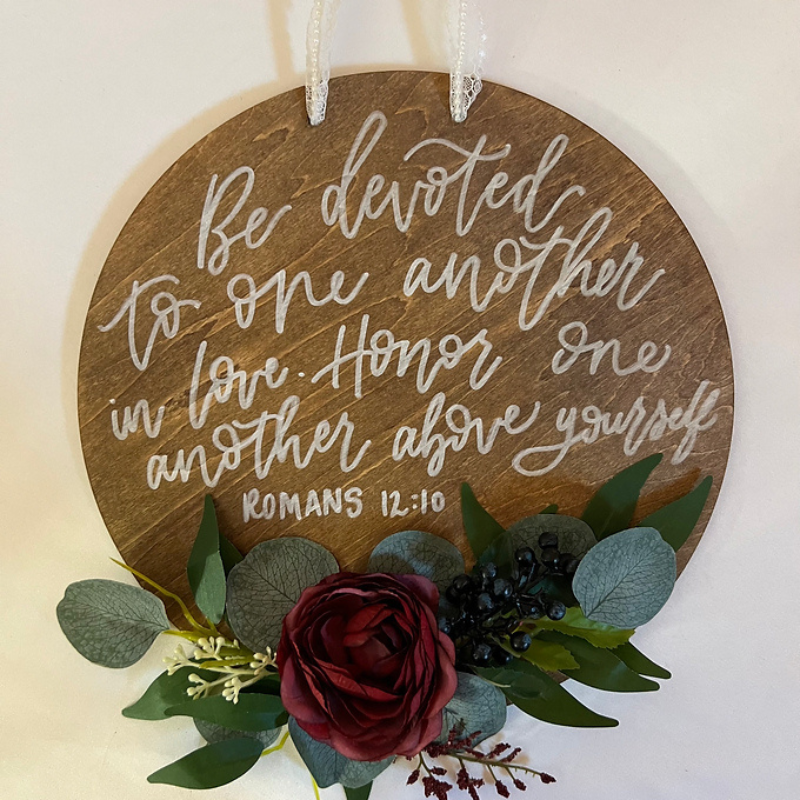 Be devoted
to one another
in love. Honor one
another above yourself
ROMANS 12:10